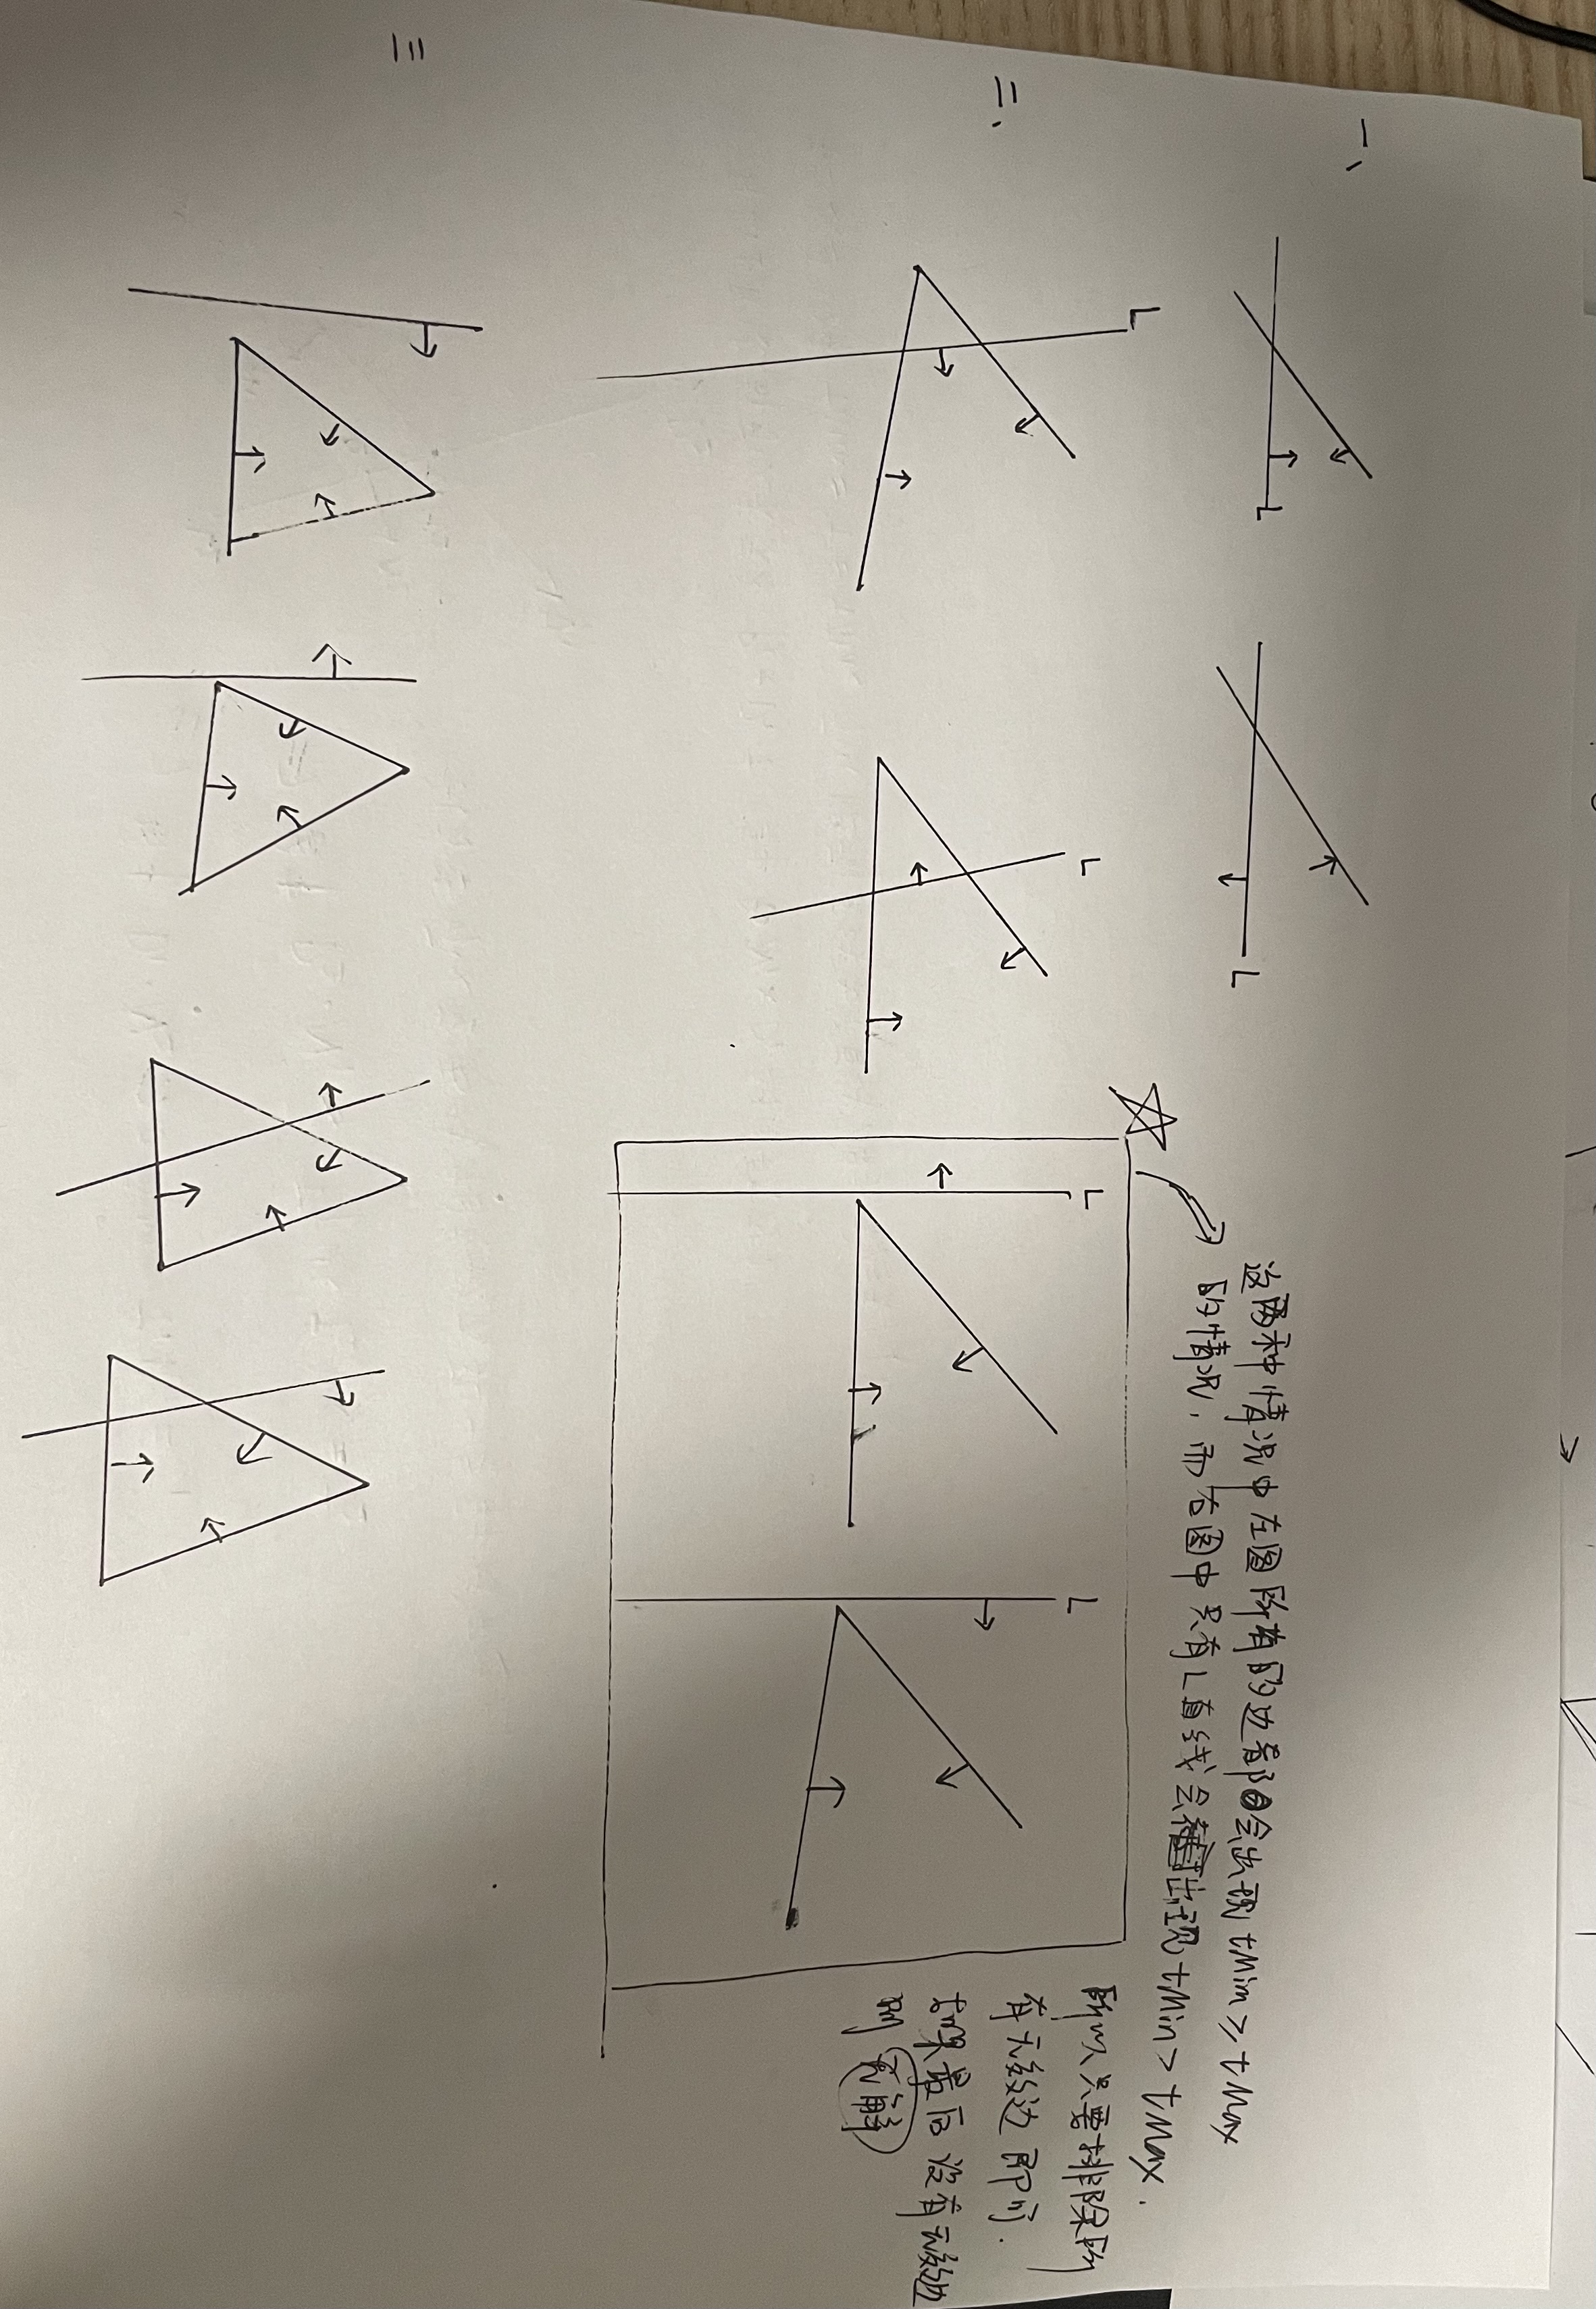 一、
L
L
这两种情况中左图所有的边都会出现 tMin ≥ tMax
的情况，而右图中只有L直线会出现 tMin > tMax.
L
L
L
L
所以只要排除所
有无效边即可.
如果最后没有无效边
则无解
二、
三